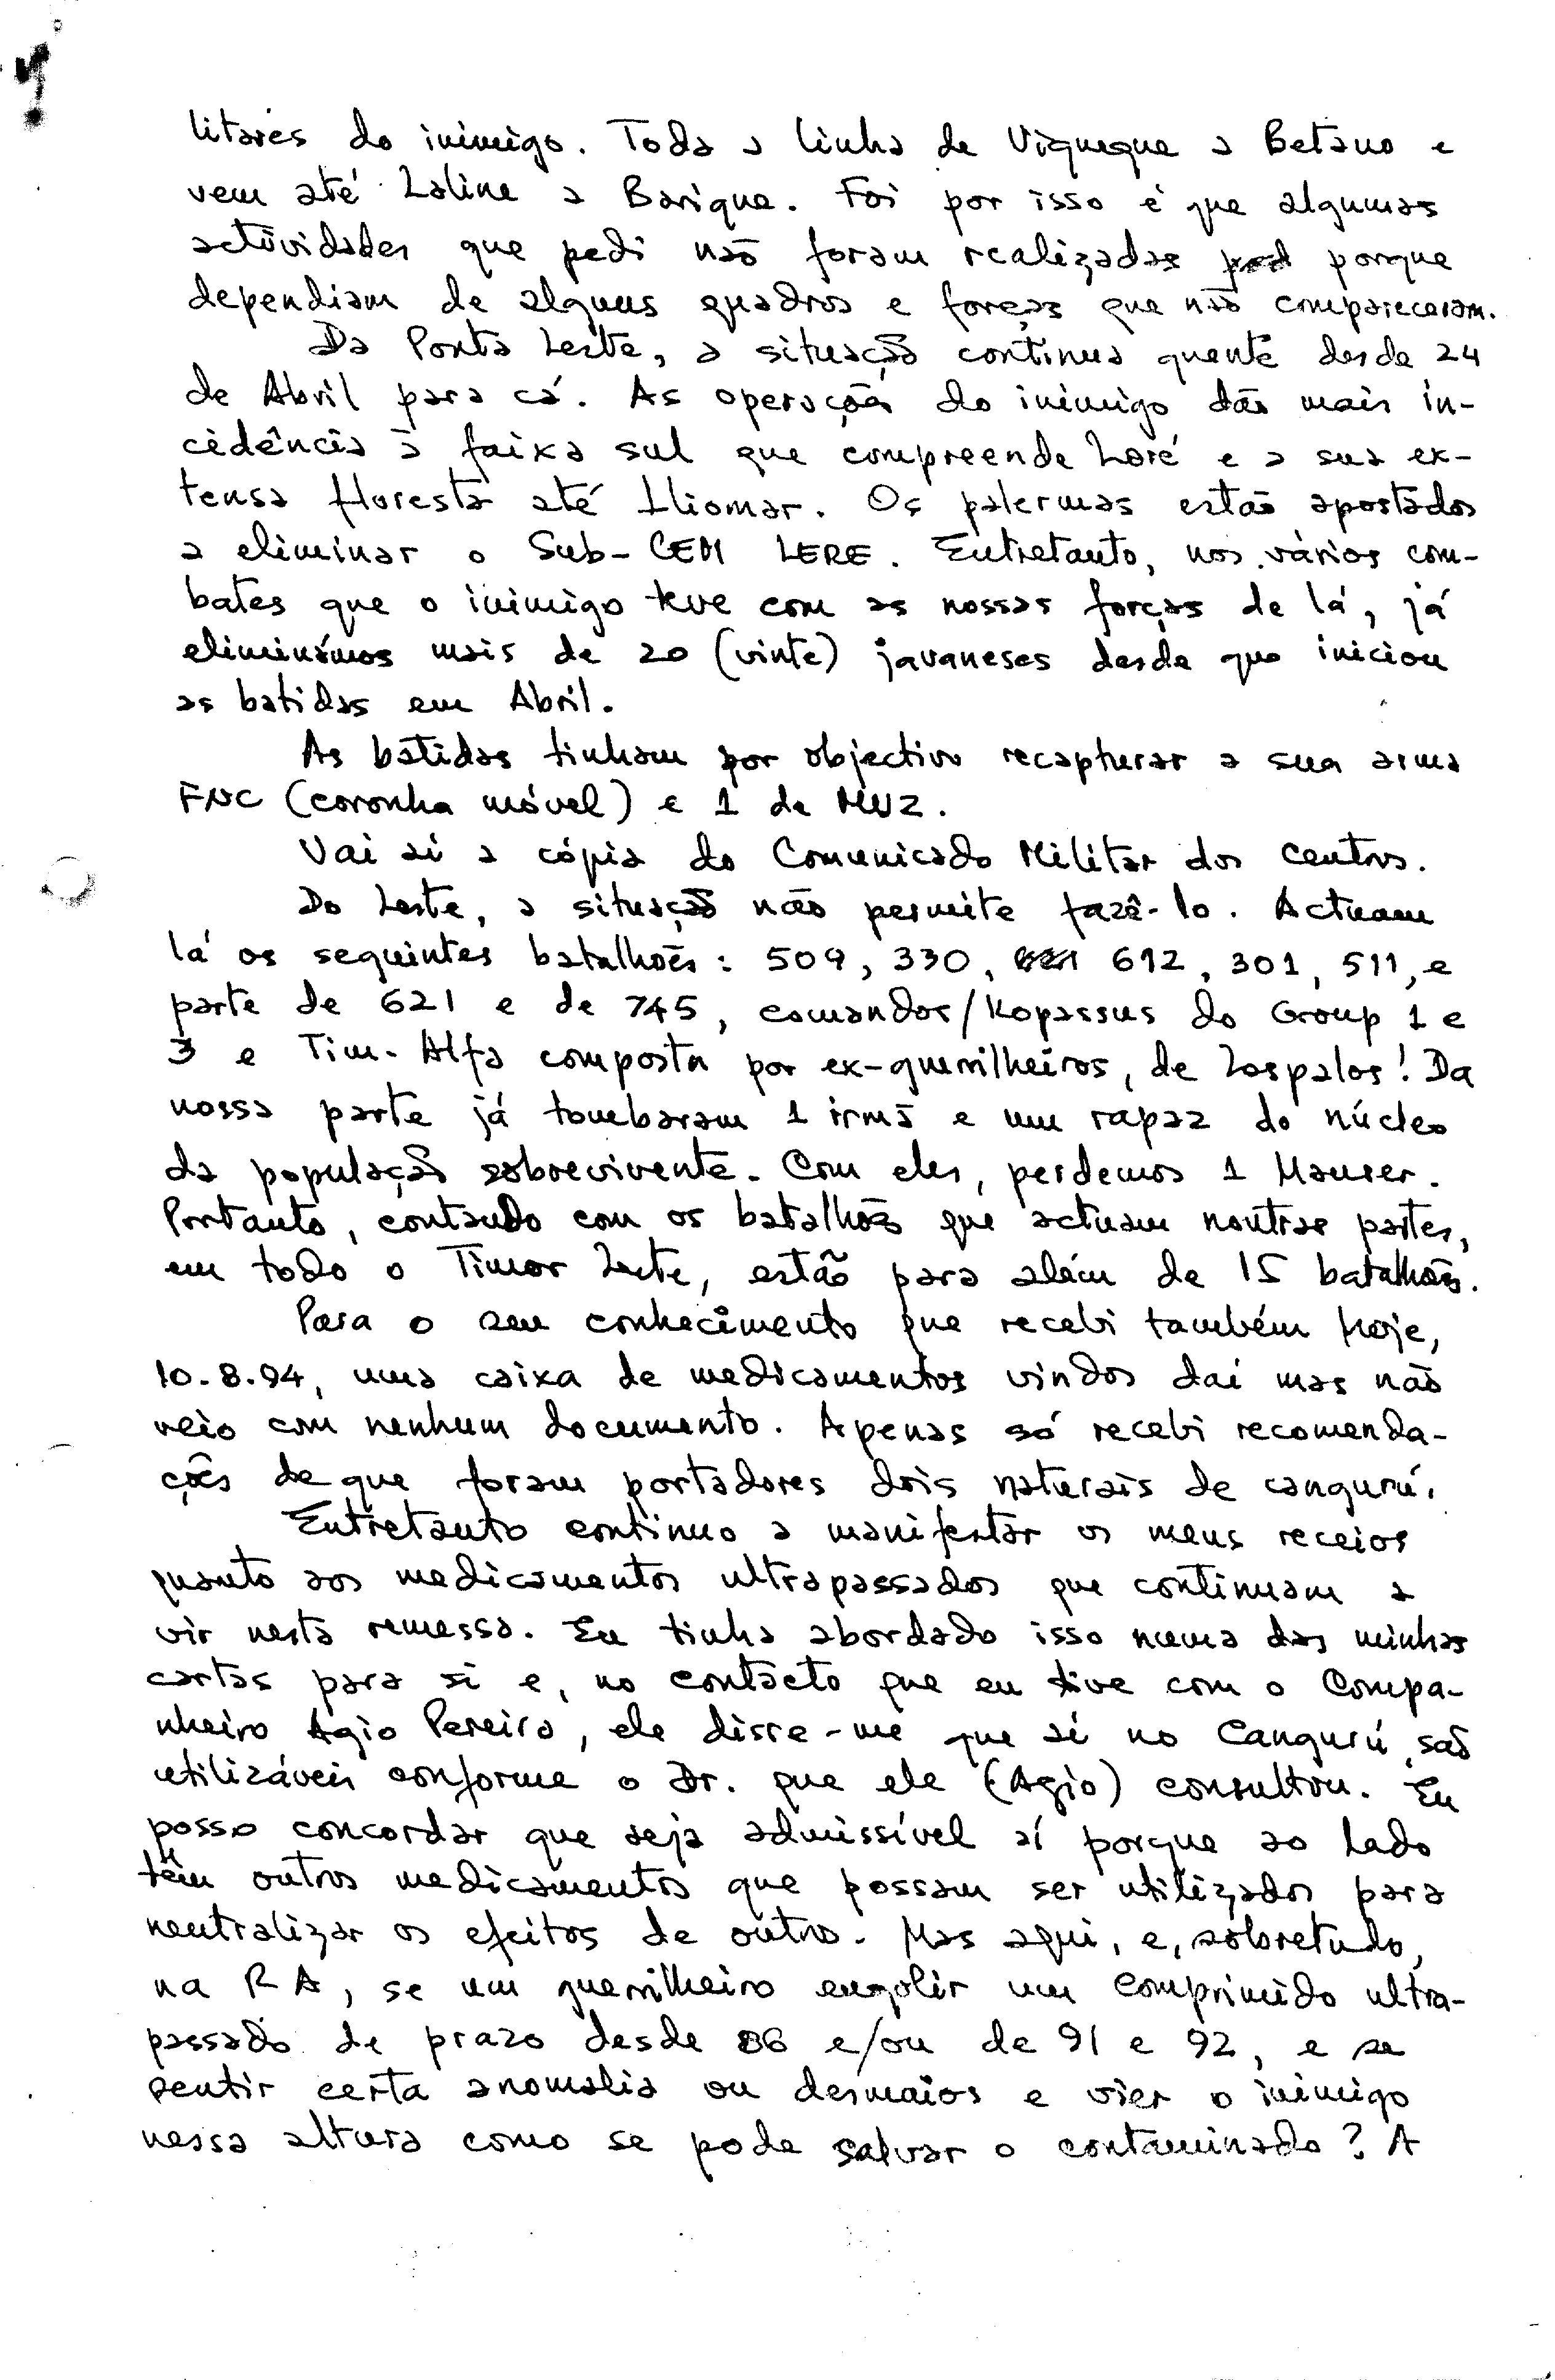 litares do inimigo. Toda a linha de Viqueque a Betano e
vem até Laline a Barique. Foi por isso é que algumas
actividades que pedi não foram realizadas porque
dependiam de alguns quadros e forças que não compareceram.
Da Ponta Leste, a situação continua quente desde 24
de Abril para cá. As operações do inimigo dão mais in-
cidência à faixa sul que compreende Loré e a sua ex-
tensa floresta até Iliomar. Os palermas estão apostados
a eliminar o Sub-CEM LERE. Entretanto, nos vários com-
bates que o inimigo teve com as nossas forças de lá, já
eliminámos mais de 20 (vinte) javaneses desde que iniciou
as batidas em Abril.
As batidas tinham por objectivo recapturar a sua arma
FNC (coronha móvel) e 1 de MUZ.
Vai aí a cópia do Comunicado Militar dos Centros.
Do Leste, a situação não permite fazê-lo. Actuam
lá os seguintes batalhões: 509, 330, 612, 301, 511, e
parte de 621 e de 745, comandos/Kopassus do Group 1 e
3 e Tim-Alfa composta por ex-guerrilheiros, de Lospalos! Da
nossa parte já tombaram 1 irmã e um rapaz do núcleo
da população sobrevivente. Com eles, perdemos 1 Mauser.
Portanto, contando com os batalhões que actuam noutras partes,
em todo o Timor Leste, estão para além de 15 batalhões.
Para o seu conhecimento que recebi também hoje,
10.8.94, uma caixa de medicamentos vindos daí mas não
veio com nenhum documento. Apenas só recebi recomenda-
ções de que foram portadores dois naturais de cangurú.
Entretanto continuo a manifestar os meus receios
quanto aos medicamentos ultrapassados que continuam a
vir nesta remessa. Eu tinha abordado isso numa das minhas
cartas para si e, no contacto que eu tive com o Compa-
nheiro Agio Pereira, ele disse-me que aí no Cangurú, são
utilizáveis conforme o Dr. que ele (Agio) consultou. Eu
posso concordar que seja admissível aí porque ao lado
têm outros medicamentos que possam ser utilizados para
neutralizar os efeitos de outro. Mas aqui, e, sobretudo,
na RA, se um guerrilheiro engolir um comprimido ultra-
passado de prazo desde 86 e/ou de 91 e 92, e se
sentir certa anomalia ou desmaios e vier o inimigo
nessa altura como se pode salvar o contaminado? A